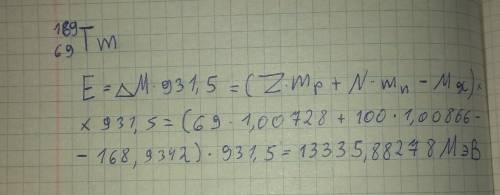 189
69 Tm
E = ΔM·931,5 = (Z·mp + N·mn − Mя)×
× 931,5 = (69·1,00728 + 100·1,00866-
- 168,9342)·931,5 = 13335,88278 МэВ